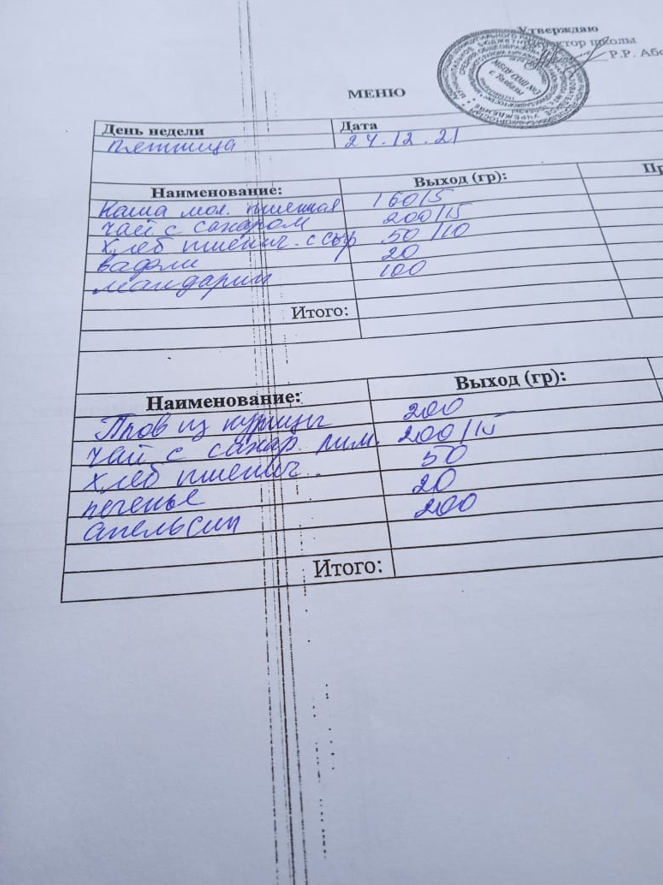 Утверждаю
директор школы
Р.Р. Абс
МЕНЮ
День недели Дата
пятница 24.12.21
Наименование: Выход (гр): Пр
Каша мол. пшенная 160/5
чай с сахаром 200/15
хлеб пшенич. с сыр 50/10
вафли 20
мандарин 100
Итого:
Наименование: Выход (гр):
Плов из курицы 200
чай с сахар. лим. 200/15
хлеб пшенич. 50
печенье 20
апельсин 200
Итого: